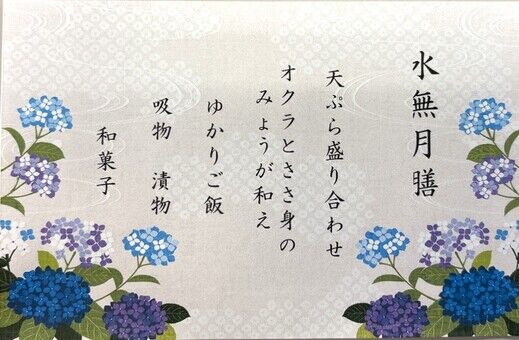 水無月膳
天ぷら盛り合わせ
オクラとささ身の
みょうが和え
ゆかりご飯
吸物　漬物
和菓子